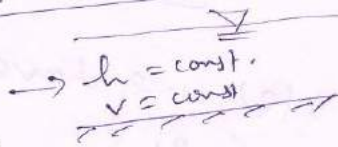 → h = const.
v = const